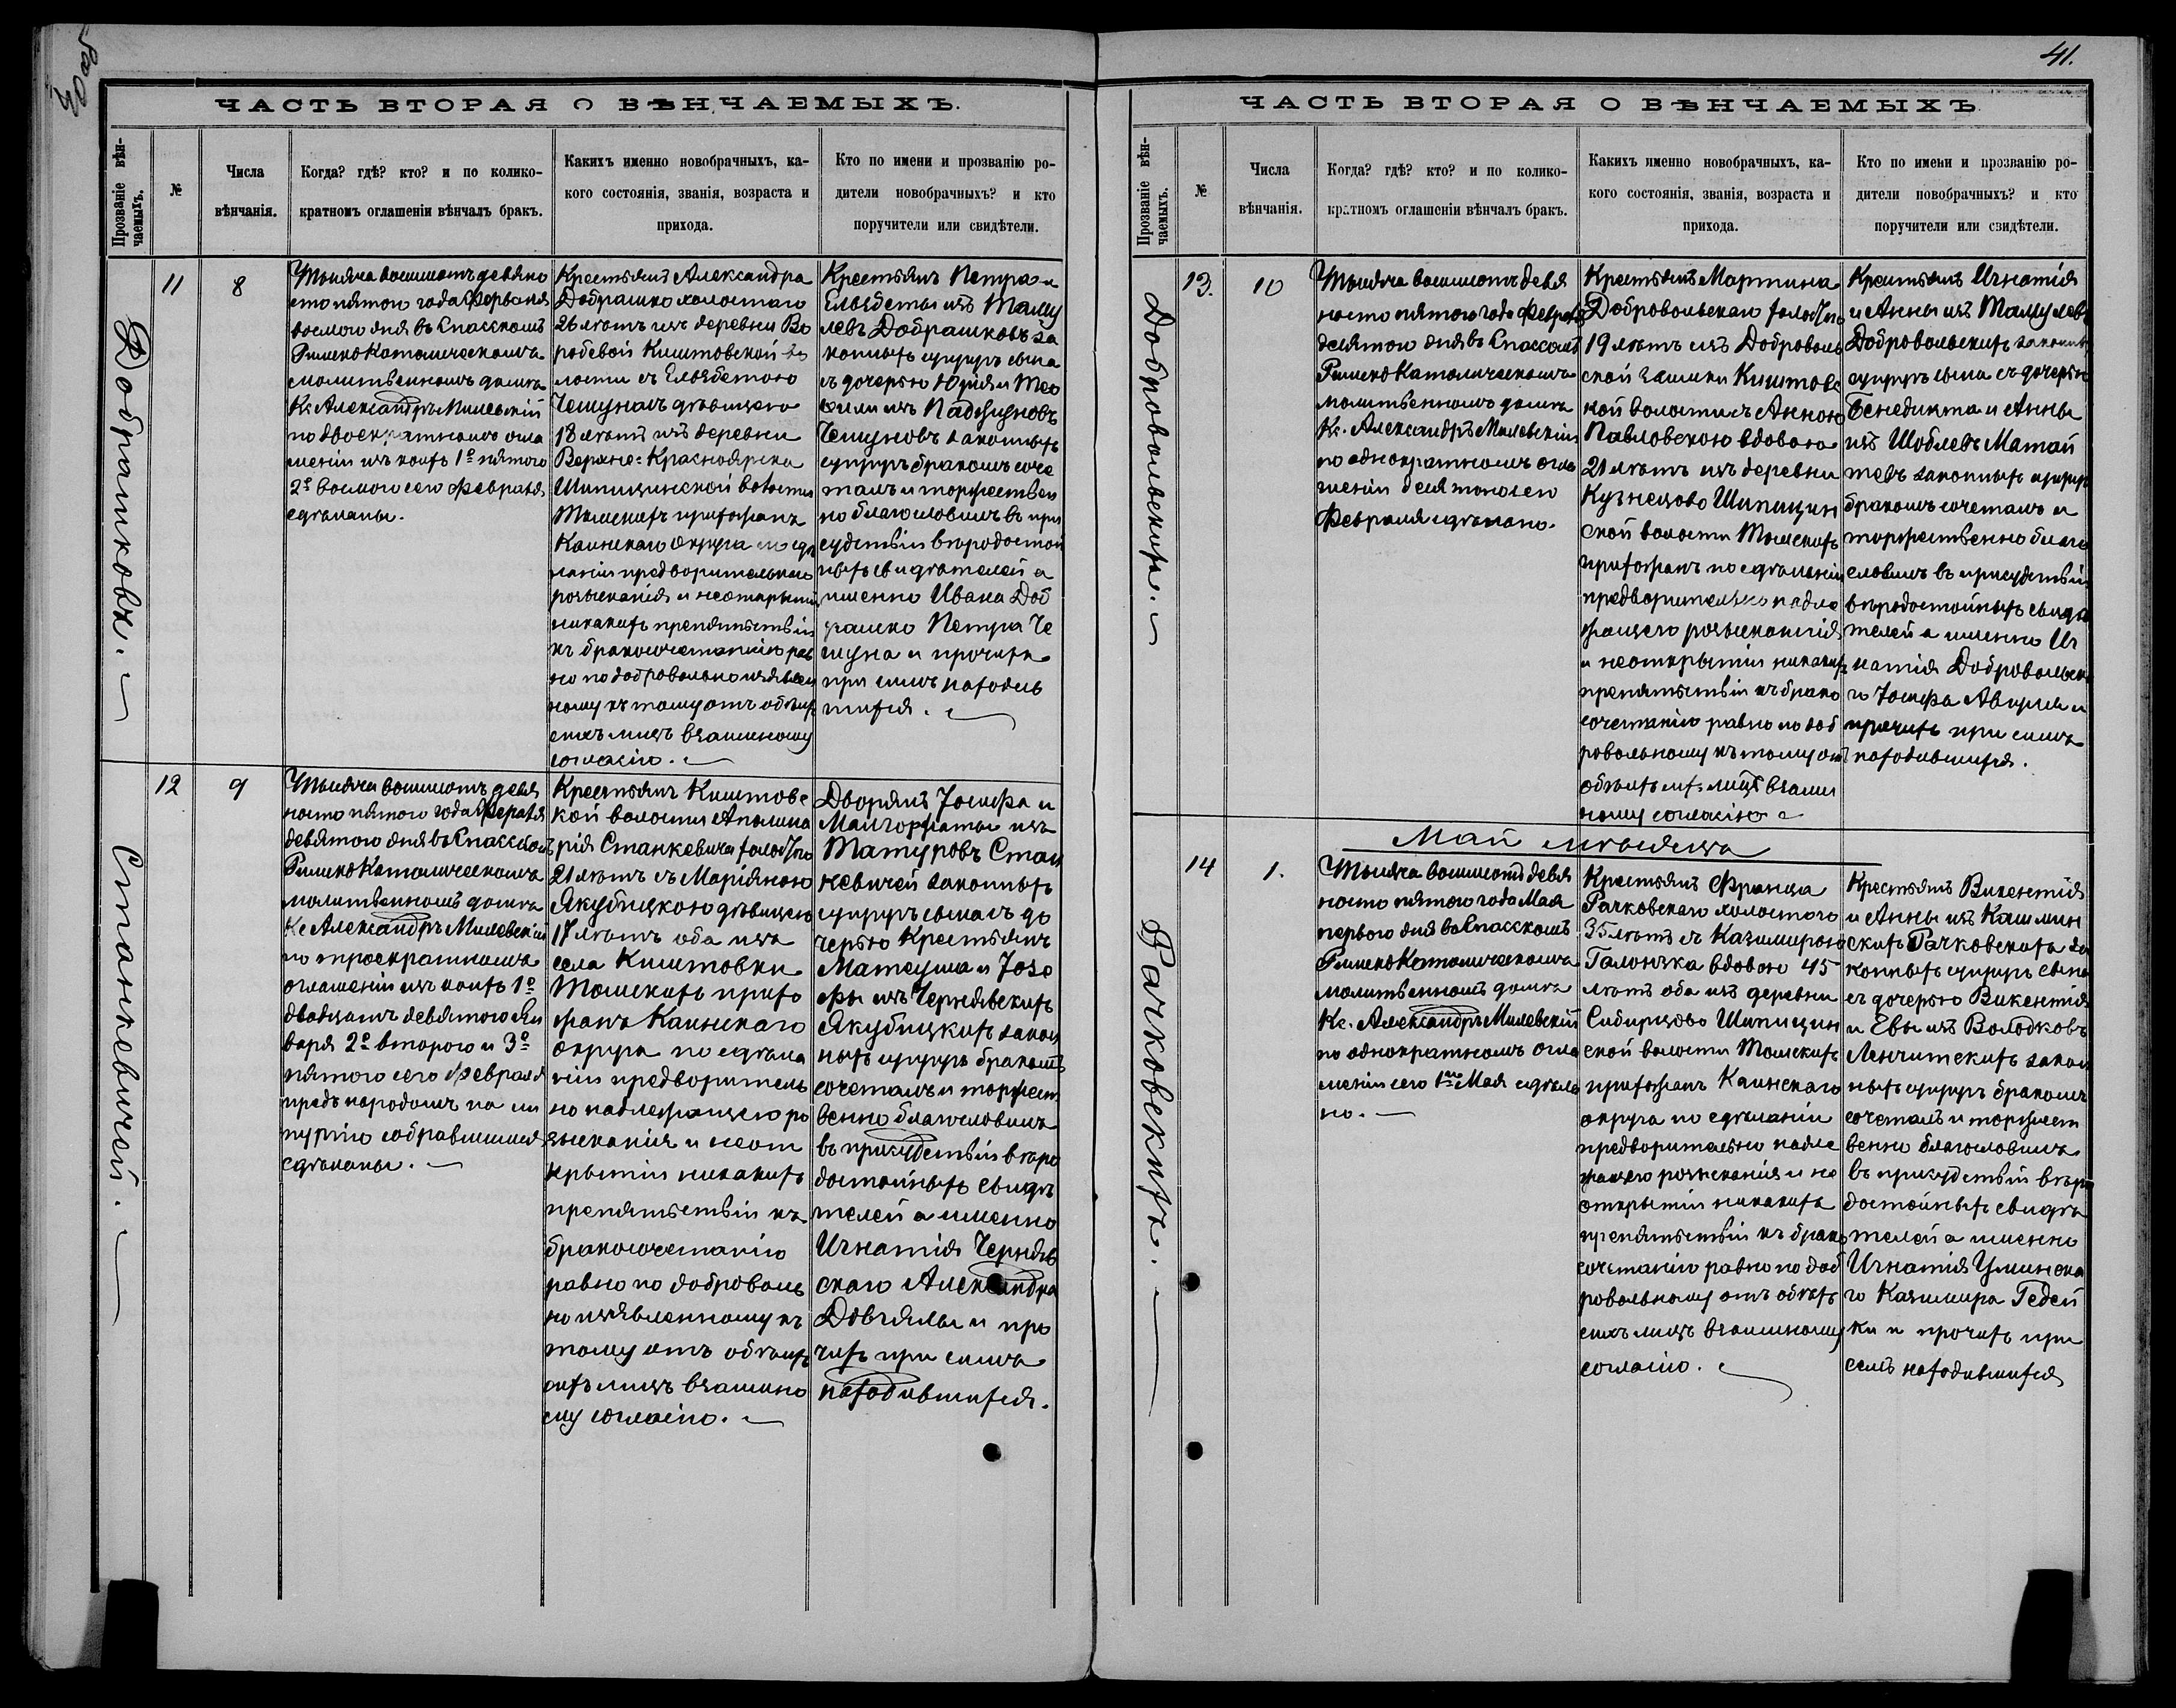 41.
ЧАСТЬ ВТОРАЯ О ВѢНЧАЕМЫХЪ.
Прозваніе вѣн-
чаемыхъ.
№
Числа
вѣнчанія.
Когда? гдѣ? кто? и по колико-
кратномъ оглашеніи вѣнчалъ бракъ.
Какихъ именно новобрачныхъ, ка-
кого состоянія, званія, возраста и
прихода.
Кто по имени и прозванію ро-
дители новобрачныхъ? и кто
поручители или свидѣтели.
Добрашковъ.
11
8
Тысяча восемьсотъ девяно
сто пятого года Февраля
восмого дня въ Спасскомъ
Римско Католическомъ
молитвенномъ домѣ
Кс Александръ Милевскій
по двоекратномъ огла
шеніи изъ коихъ 1е пятого
2е восмого сего Февраля
сдѣланы.
Крестьянъ Александра
Добрашко холостаго
26 лѣтъ изъ деревни Во
робевой Киштовской во
лости съ Ельжбетою
Чешунъ дѣвицею
18 лѣтъ изъ деревни
Верхне-Красноярска
Шипицинской волости
Томскихъ прихожанъ
Каинскаго округа по сдѣ
ланіи предворительного
розысканія и неоткрытіи
никакихъ препятствій
къ бракосочетанію рав
но по добровольно изъявлен
ному къ тому отъ обѣихъ
сихъ лицъ взаимному
согласію.
Крестьянъ Петра и
Ельжбеты изъ
Добрашковъ за
конныхъ супруговъ сына
съ дочерью Юрія и Тео
филіи изъ
Чешуновъ законныхъ
супруговъ бракомъ соче
талъ и торжествен
но благословилъ въ при
судствіи вѣродостой
ныхъ свидѣтелей а
именно Ивана Доб
рашко Петра Че
шуна и прочихъ
при семъ находив
шихся.
Станкевичей.
12
9
Тысяча восемьсотъ девя
носто пятого года Февраля
девятого дня въ Спасскомъ
Римско Католическомъ
молитвенномъ домѣ
Кс Александръ Милевскій
по троекратномъ
оглашеніи изъ коихъ 1е
двадцать девятого Ян
варя 2е второго и 3е
пятого сего Февраля
предъ народомъ на ли
тургію собравшимся
сдѣланы.
Крестьянъ Киштовс
кой волости Аполина
рія Станкевича холостого
21 лѣтъ съ Маріяною
Якубицкою дѣвицею
17 лѣтъ оба изъ
села Киштовки
Томскихъ прихо
жанъ Каинскаго
округа по сдѣла
ніи предворитель
но надлежащего ро
зысканія и неот
крытіи никакихъ
препятствій къ
бракосочетанію
равно по доброволь
но изъявленному къ
тому отъ обѣихъ
сихъ лицъ взаимно
му согласію.
Дворянъ Іосифа и
Малгоржаты изъ
Стан
кевичей законныхъ
супруговъ сына съ до
черью Крестьянъ
Матеуша и Іозе
фы изъ Чернявскихъ
Якубицкихъ закон
ныхъ супруговъ бракомъ
сочеталъ и торжест
венно благословилъ
въ присудствіи вѣро
достойныхъ свидѣ
телей а именно
Игнатія Чернявс
скаго Александра
Довгялы и про
чихъ при семъ
находившихся.
ЧАСТЬ ВТОРАЯ О ВѢНЧАЕМЫХЪ
Прозваніе вѣн-
чаемыхъ.
№
Числа
вѣнчанія.
Когда? гдѣ? кто? и по колико-
кратномъ оглашеніи вѣнчалъ бракъ.
Какихъ именно новобрачныхъ, ка-
кого состоянія, званія, возраста и
прихода.
Кто по имени и прозванію ро-
дители новобрачныхъ? и кто
поручители или свидѣтели.
Добровольскихъ.
13.
10
Тысяча восемьсотъ девя
носто пятого года Февраля
десятого дня въ Спасскомъ
Римско Католическомъ
молитвенномъ домѣ
Кс. Александръ Милевскій
по однократномъ огла
шеніи десятого сего
Февраля сдѣлано.
Крестьянъ Мартина
Добровольскаго холостого
19 лѣтъ изъ Доброволь
ской заимки Киштовс
кой волости съ Анною
Павловскою вдовою
21 лѣтъ изъ деревни
Кузнецово Шипицин
ской волости Томскихъ
прихожанъ по сдѣланіи
предворительно надле
жащего розысканія
и неоткрытіи никакихъ
препятствій къ брако
сочетанію равно по доб
ровольному къ тому отъ
обѣихъ лицъ взаим
ному согласію
Крестьянъ Игнатія
и Анны изъ
Добровольскихъ законныхъ
супруговъ сына съ дочерью
Бенедикта и Анны
изъ Матай
тевъ законныхъ супруговъ
бракомъ сочеталъ и
торжественно благо
словилъ въ присудствіи
вѣродостойныхъ свидѣ
телей а именно Иг
натія Добровольска
го Іосифа и
прочихъ при семъ
находившихся.
Май мѣсяца
Рачковскихъ.
14
1.
Тысяча восемьсотъ девя
носто пятого года Мая
перваго дня въ Спасскомъ
Римско Католическомъ
молитвенномъ домѣ
Кс. Александръ Милевскій
по однократномъ огла
шеніи сего 1го Мая сдѣла
но.
Крестьянъ Франца
Рачковскаго холостого
35 лѣтъ съ Казимирою
Галонзка вдовою 45
лѣтъ оба изъ деревни
Сибирцово Шипицин
ской волости Томскихъ
прихожанъ Каинскаго
округа по сдѣланіи
предворительно надле
жащего розысканія и не
открытіи никакихъ
препятствій къ брако
сочетанію равно по доб
ровольному отъ обѣихъ
сихъ лицъ взаимному
согласію.
Крестьянъ Викентія
и Анны изъ
Рачковскихъ за
конныхъ супруговъ сына
съ дочерью Викентія
и Евы изъ Володковъ
Ленчитскихъ закон
ныхъ супруговъ бракомъ
сочеталъ и торжест
венно благословилъ
въ присудствіи вѣро
достойныхъ свидѣ
телей а именно
Игнатія Уминска
го Казимира Гедей
ки и прочихъ при
семъ находившихся